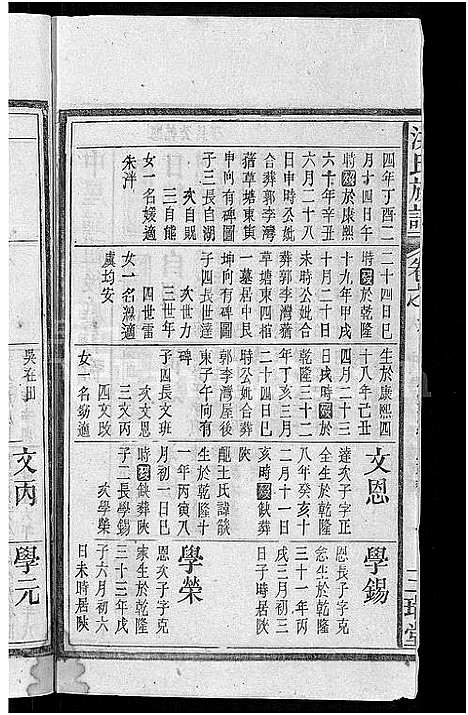 四年丁酉二
月十四日午
時歿於康熙
六十年辛丑
六月二十八
日申時公妣合
葬郭李灣
藉草塘東寅
申向有碑圖
子三長自湖
次自眖
三自能
女一名嫒適
朱泮
二十四日巳
時歿於乾隆
十九年甲戌
十月二十日
未時公妣合
葬郭李灣藉
草塘東四棺
一墓居中艮
坤向有碑圖
子四長世庄
次世力
三世年
四世雷
女一名㵯適
虞均安
生於康熙四
十八年己丑
四月二十三
日戌時歿於
乾隆三十二
年丁亥三月
二十四日巳
時公妣合葬
郭李灣屋後
東子午向有
碑
子四長文班
次文恩
三文丙
四文玫
女一名㓜適
吳在田
文恩
達次子字正
全生於乾隆
八年癸亥十
二月十一日
亥時歿缺葬
陝
龍王氏諱燚
生於乾隆十
一年丙寅八
月初一日巳
時歿缺葬陝
子二長學錫
次學榮
文丙
學錫
恩長子字克
忩生於乾隆
三十一年丙
戌三月初三
日子時居陝
學榮
恩次子字克
寀生於乾隆
三十三年戊
子六月初六
日未時居陝
學元
氏族譜
卷之
三珠堂